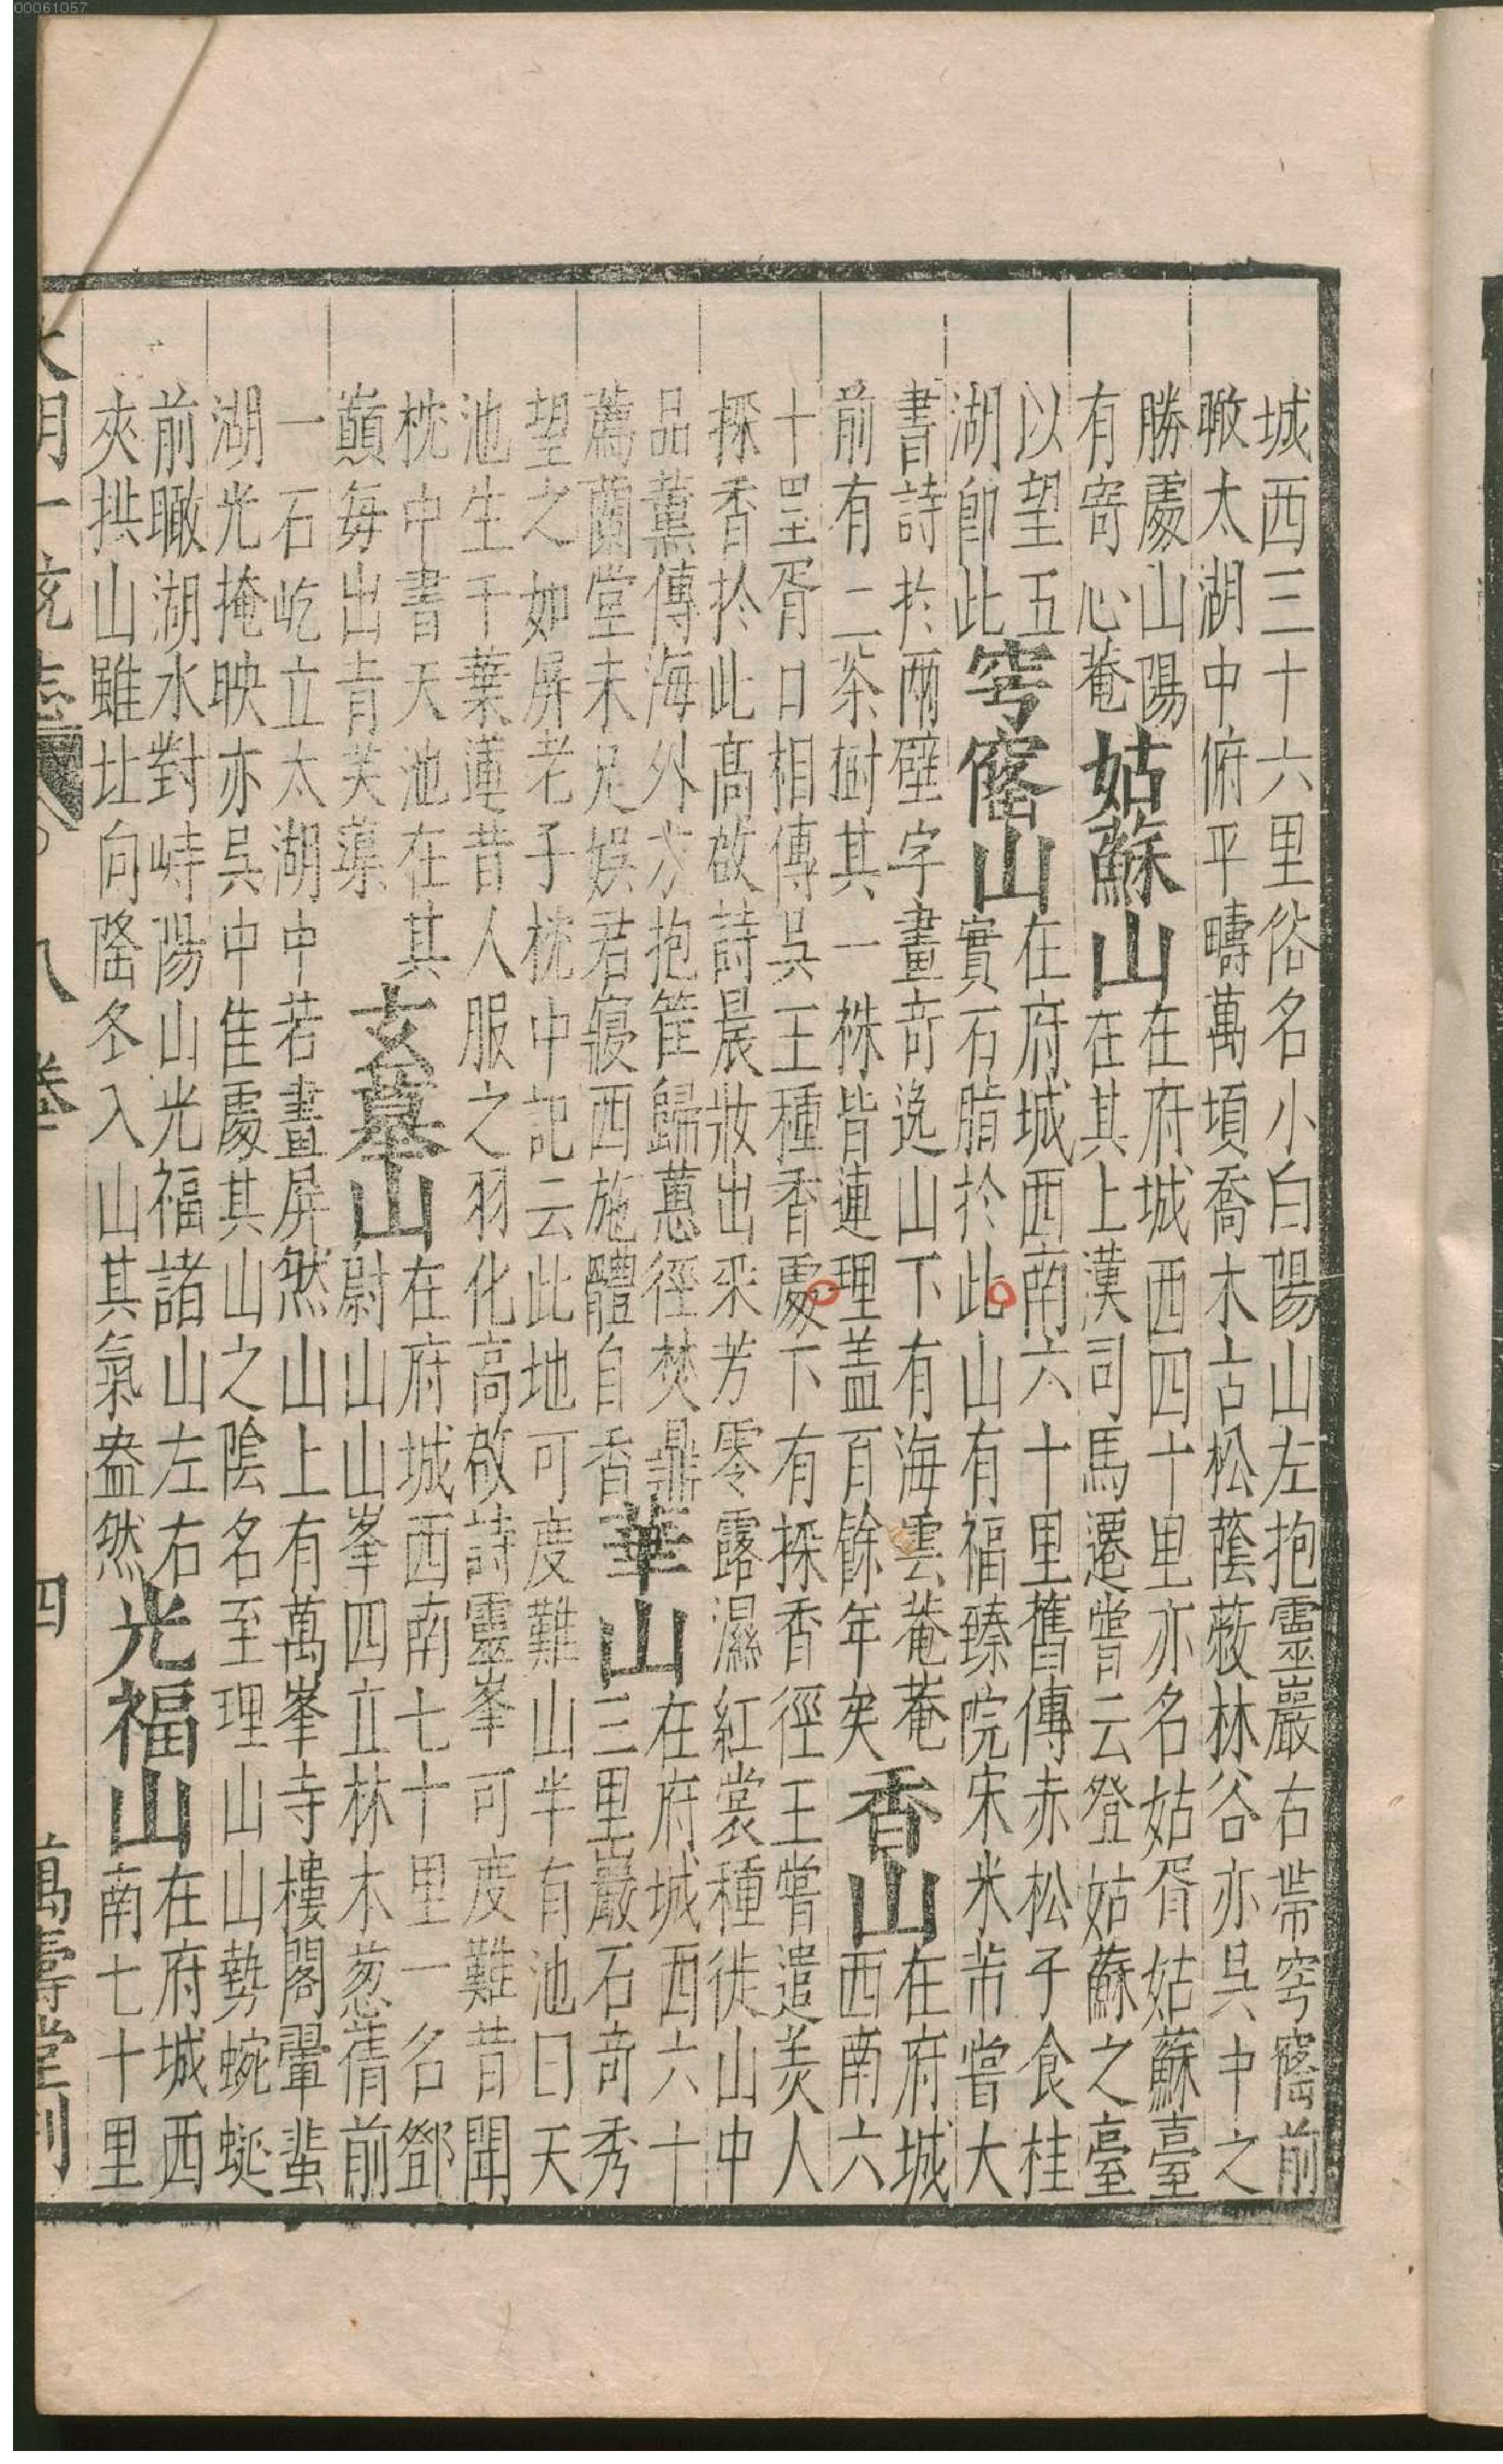 城西三十六里俗名小白陽山左抱靈巖右帶穹窿前
瞰太湖中俯平疇萬頃喬木古松蔭蔽林谷亦吳中之
勝處山陽
有寄心菴
姑蘇山
在府城西四十里亦名姑胥姑蘇臺
在其上漢司馬遷嘗云登姑蘇之臺
以望五
湖卽此
穹窿山
在府城西南六十里舊傳赤松子食桂
實石脂於此山有福臻院宋米芾嘗大
書詩於兩壁字畫奇逸山下有海雲菴菴
前有二茶樹其一株皆連理蓋百餘年矣
香山
在府城
西南六
十里胥口相傳吳王種香處下有採香徑王嘗遣美人
採香於此高啟詩晨妝出采芳零露濕紅裳種徙山中
品薰傳海外方抱筐歸蕙徑焚鼎
薦蘭堂未足娛君寢西施體自香
華山
在府城西六十
三里巖石奇秀
望之如屏老子枕中記云此地可度難山半有池曰天
池生千葉蓮昔人服之羽化高啟詩靈峯可度難昔聞
枕中書天池在其
巔每出青芙蕖
玄墓山
在府城西南七十里一名鄧
尉山山峯四立林木葱蒨前
一石屹立太湖中若畫屏然山上有萬峯寺樓閣翬蜚
湖光掩映亦吳中佳處其山之陰名至理山山勢蜿蜒
前瞰湖水對峙陽山光福諸山左右
夾拱山雖北向隆冬入山其氣盎然
光福山
在府城西
南七十里
大明一統志 八卷 四 萬壽堂刊
00061057